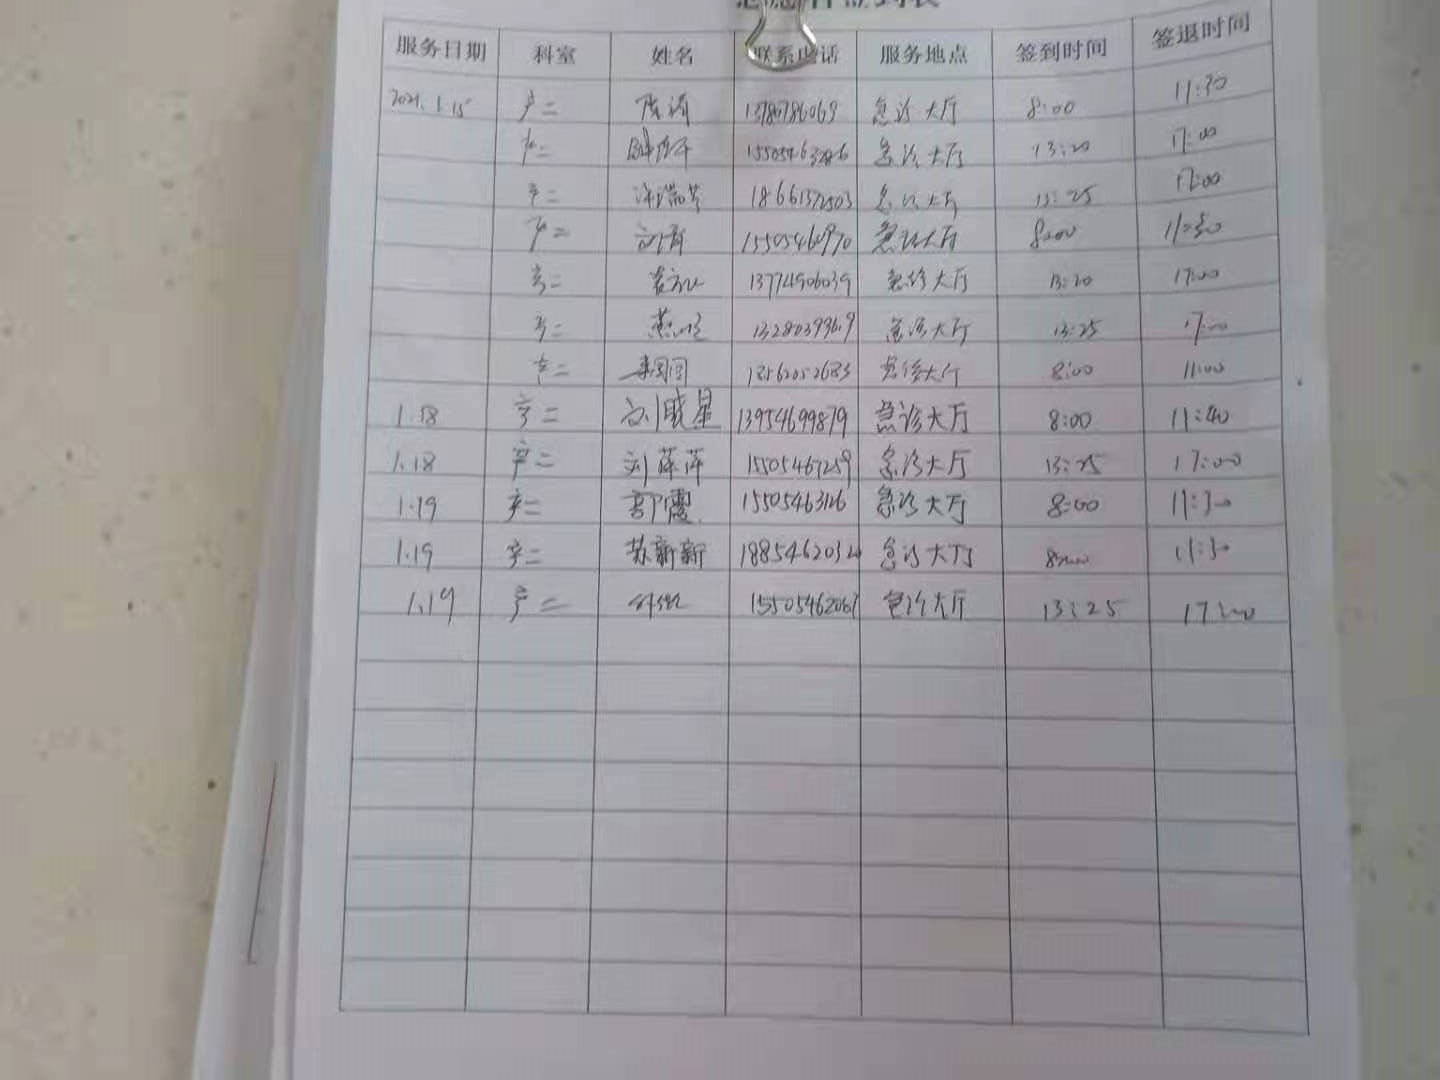 服务日期 科室 姓名 联系电话 服务地点 签到时间 签退时间
2021.1.15 产二 13780786069 急诊大厅 8:00 11:30
产二 急诊大厅 13:20 17:00
产二 18661372503 急诊大厅 13:25 17:00
产二 15505460970 急诊大厅 8:00 11:30
产二 13774906039 急诊大厅 13:20 17:00
产二 13280393619 急诊大厅 13:25 17:00
产二 急诊大厅 8:00 11:00
1.18 产二 刘晓星 13954699879 急诊大厅 8:00 11:40
1.18 产二 刘萍萍 15505467259 急诊大厅 13:25 17:00
1.19 产二 郭震 15505463126 急诊大厅 8:00 11:30
1.19 产二 苏新新 急诊大厅 8:00 11:30
1.19 产二 15505462067 急诊大厅 13:25 17:00